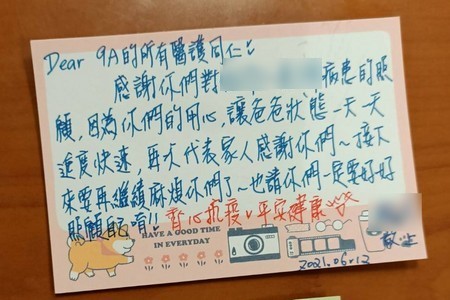 Dear 9A的所有醫護同仁:
感謝你們對 病患的照
顧,因為你們的用心,讓爸爸狀態一天一天
進度快速,再次代表家人感謝你們~接下
來要再繼續麻煩你們了~也請你們一定要好好
照顧自己唷!! 齊心抗疫、平安健康
HAVE A GOOD TIME
IN EVERYDAY
敬上
2021.06.12